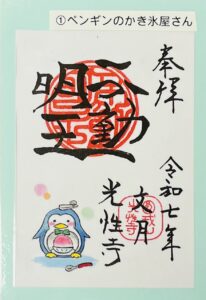 ①ペンギンのかき氷屋さん
奉拝
令和七年
文月
不動
明王
光性寺